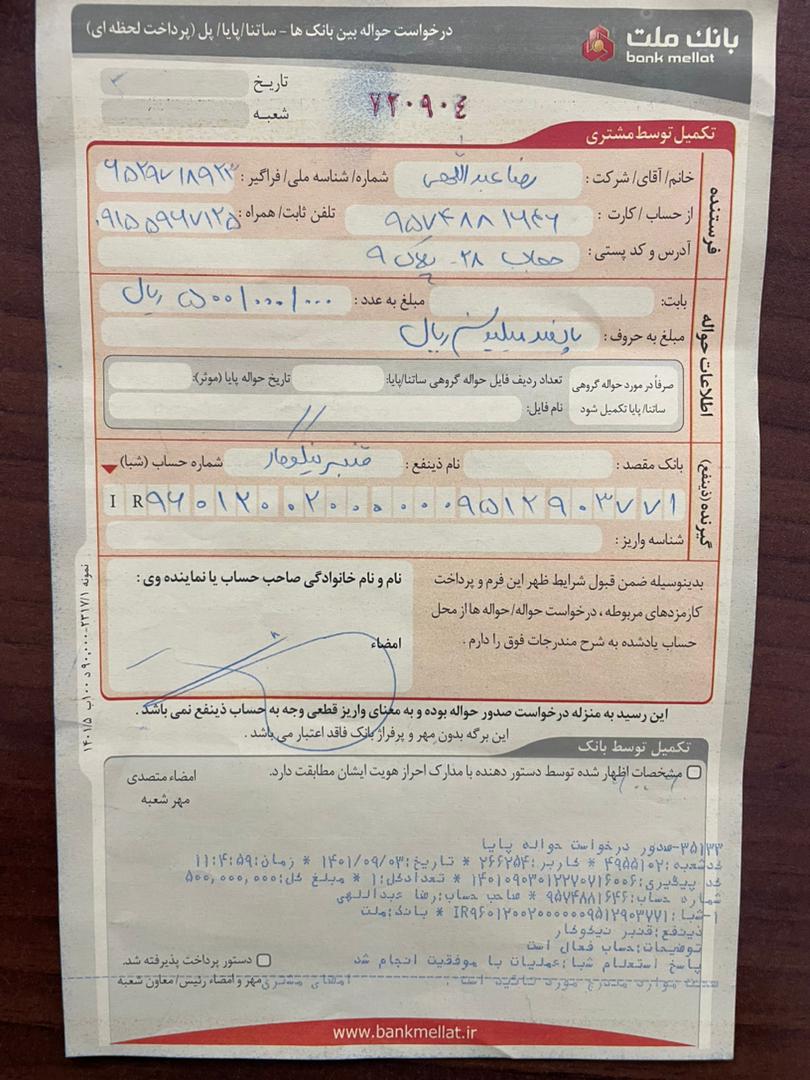 بانک ملت
bank mellat
درخواست حواله بین بانک ها - ساتنا/پایا/پل (پرداخت لحظه ای)
تاریخ
شعبه
۷۲۰۹۰۴
تکمیل توسط مشتری
فرستنده
خانم/آقای/شرکت : رضا عبداللهی شماره/شناسه ملی/فراگیر :
از حساب/کارت : ۹۵۷۴۸۸۱۶۴۶ تلفن ثابت/همراه : ۰۹۱۵۵۹۶۷۱۲۵
آدرس و کد پستی : حجاب ۲۸- پلاک ۹
اطلاعات حواله
بابت: مبلغ به عدد : ۵۰۰/۰۰۰/۰۰۰ ریال
مبلغ به حروف : پانصد میلیون ریال
صرفاً در مورد حواله گروهی ساتنا/پایا تکمیل شود
تعداد ردیف فایل حواله گروهی ساتنا/پایا: تاریخ حواله پایا (موثر):
نام فایل:
گیرنده (ذینفع)
بانک مقصد : نام ذینفع : قنبر نیکوکار شماره حساب (شبا)
IR۹۶۰۱۲۰۰۲۰۰۰۰۰۰۹۵۱۲۹۰۳۷۷۱
شناسه واریز :
بدینوسیله ضمن قبول شرایط ظهر این فرم و پرداخت
کارمزدهای مربوطه ، درخواست حواله/حواله ها از محل
حساب یادشده به شرح مندرجات فوق را دارم .
نام و نام خانوادگی صاحب حساب یا نماینده وی :
امضاء
این رسید به منزله درخواست صدور حواله بوده و به معنای واریز قطعی وجه به حساب ذینفع نمی باشد .
این برگه بدون مهر و پرفراژ بانک فاقد اعتبار می باشد .
تکمیل توسط بانک
مشخصات اظهار شده توسط دستور دهنده با مدارک احراز هویت ایشان مطابقت دارد.
امضاء متصدی
مهر شعبه
۳۵۱۳۳-صدور درخواست حواله پایا
کدشعبه:۴۹۵۵۱۰۲ * کاربر:۲۶۶۲۵۴ * تاریخ:۱۴۰۱/۰۹/۰۳ * زمان:۱۱:۴:۵۹
کد پیگیری:۱۴۰۱۰۹۰۳۰۱۲۲۷۰۷۱۶۰۰۶ * تعدادکل:۱ * مبلغ کل:۵۰۰,۰۰۰,۰۰۰
شماره حساب:۹۵۷۴۸۸۱۶۴۶ * صاحب حساب:رضا عبداللهی
۱-شبا:IR۹۶۰۱۲۰۰۲۰۰۰۰۰۰۹۵۱۲۹۰۳۷۷۱ * بانک:ملت
ذینفع:قنبر نیکوکار
توضیحات:حساب فعال است
پاسخ استعلام شبا:عملیات با موفقیت انجام شد
صحت موارد مندرج مورد تائید است . امضای مشتری
دستور پرداخت پذیرفته شد.
مهر و امضاء رئیس/معاون شعبه
www.bankmellat.ir